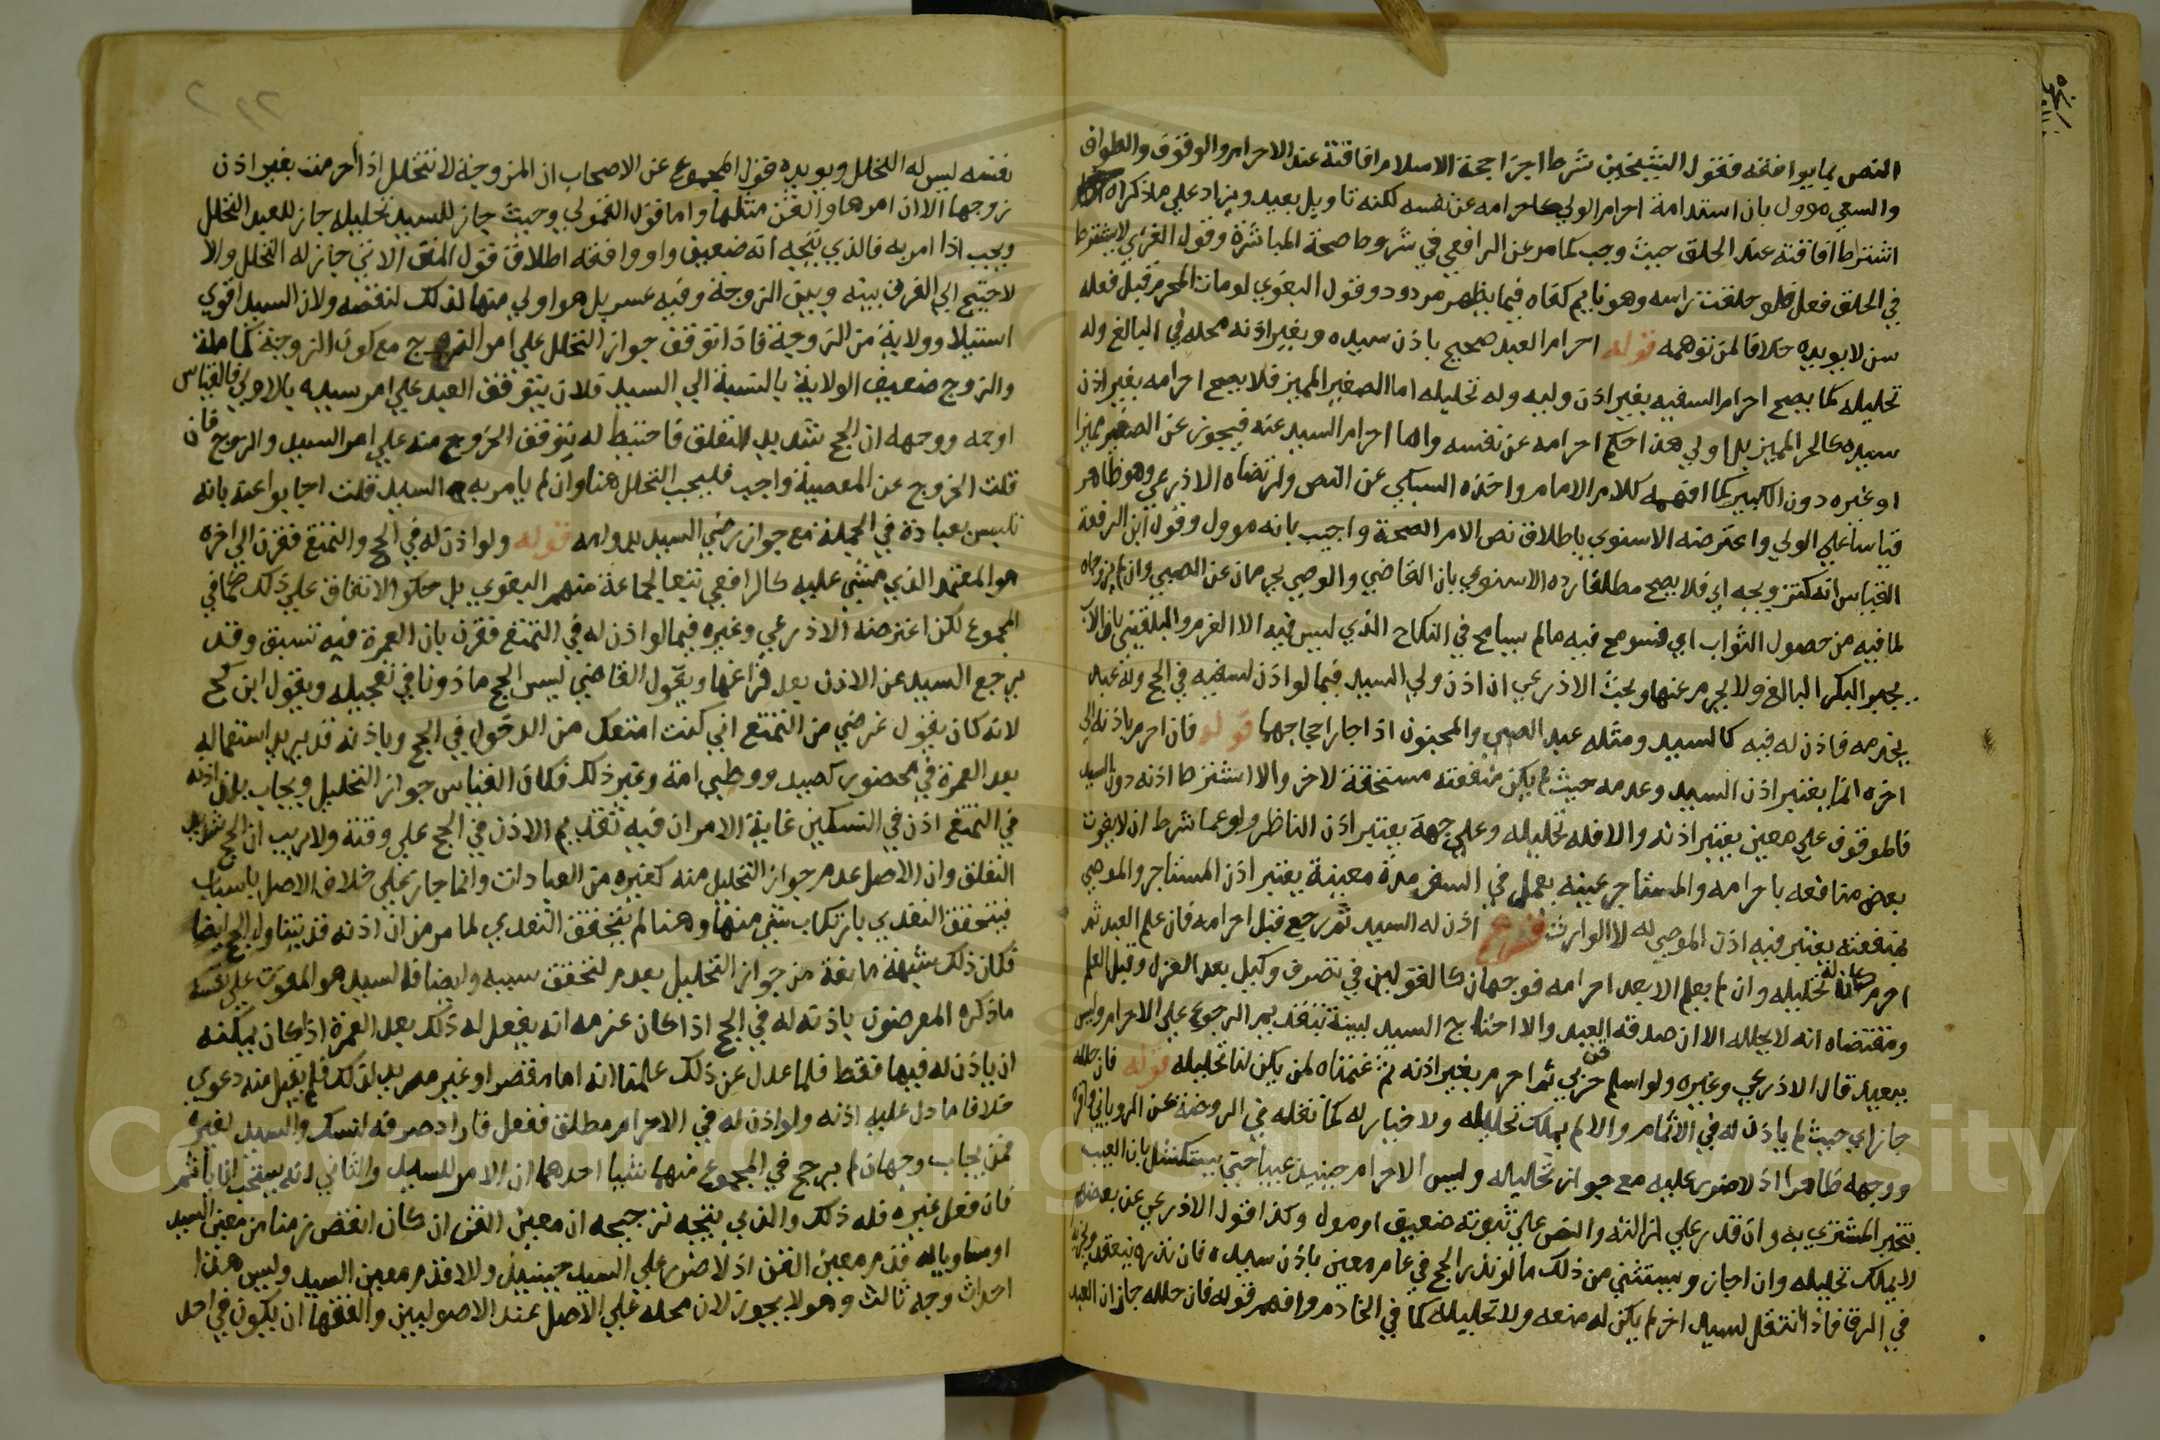 النص بما يوافقه فقول الشيخين شرط اجزا حجة الاسلام افاقته عند الاحرام والوقوف والطواف
والسعي موول بان استدامة احرام الولي كاحرامه عن نفسه لكنه تاويل بعيد ويزاد علي ما ذكراه
اشتراط افاقته عند الحلق حيث وجب كما مر عن الرافعي في شروط صحة المباشرة وقول الغزي لا يشترط
في الحلق فعل فلو حلقت راسه وهو نايم كفاه فيما يظهر مردود وقول البغوي لو مات المحرم قبل فعله
سن لا يويده خلافا لمن توهمه قوله احرام العبد صحيح باذن سيده وبغير اذنه محله في البالغ وله
تحليله كما يصح احرام السفيه بغير اذن وليه وله تحليله اما الصغير المميز فلا يصح احرامه بغير اذن
سيده كالحر المميز بل اولي هذا حكم احرامه عن نفسه واما احرام السيد عنه فيجوز عن الصغير مميزا
او غيره دون الكبير كما افهمه كلام الامام واخذه السبكي عن النص وارتضاه الاذرعي وهو ظاهر
قياسا علي الولي واعترضه الاسنوي باطلاق نص الام الصحة واجيب بانه موول وقول ابن الرفعة
القياس انه كتزويجه اي فلا يصح مطلقا رده الاسنوي بان القاضي والوصي يحرمان عن الصبي وان لم يزوجاه
لما فيه من حصول الثواب اي فسومح فيه ما لم يسامح في النكاح الذي ليس فيه الا الغرم والبلقيني بان الاب
يجبر البكر البالغ ولا يحرم عنها وبحث الاذرعي ان اذن ولي السيد فيما لو اذن لسفيه في الحج وله عبد
يخدمه فاذن له فيه كالسيد ومثله عبد الصبي والمجنون اذا جاز احجاجهما قوله فان احرم باذنه الي
اخره انما يعتبر اذن السيد وعدمه حيث لم يكن منفعته مستحقة لاخر والا اشترط اذنه دون السيد
فالموقوف علي معين يعتبر اذنه والا فله تحليله وعلي جهة يعتبر اذن الناظر ولو عملا شرط ان لا يفوت
بعض منافعه باحرامه والمستاجر عينه بعمل في السفر مدة معينة يعتبر اذن المستاجر والموصي
بمنفعته يعتبر فيه اذن الموصي له لا الوارث فرع اذن له السيد ثم رجع قبل احرامه فان علم العبد ثم
احرم كان له تحليله وان لم يعلم الا بعد احرامه فوجهان كالقولين في تصرف وكيل بعد العزل وقبل العلم
ومقتضاه انه لا يحلله الا ان صدقه العبد والا احتاج السيد لبينة بتقديم الرجوع علي الاحرام وليس
ببعيد قال الاذرعي وغيره ولو اسلم قن حربي ثم احرم بغير اذنه ثم غنمناه لم يكن لنا تحليله قوله فان حلله
جاز اي حيث لم ياذن له في الاتمام والا لم يملك تحليله ولا خيار له كما نقله في الروضة عن الروياني واقره
ووجهه ظاهر اذ لا ضرر عليه مع جواز تحليله وليس الاحرام حينيذ عيبا حتي يستشكل بان العيب
يتخير المشتري به وان قدر علي ازالته والنص علي ثبوته ضعيف او موول وكذا قول الاذرعي عن بعضهم
لا يملك تحليله وان اجاز ويستثني من ذلك ما لو نذر الحج في عام معين باذن سيده فان نذره ينعقد ويجزيه
في الرق فاذا انتقل لسيد اخر لم يكن له منعه ولا تحليله كما في الخادم وافهم قوله فان حلله جاز ان العبد
نفسه ليس له التحلل ويويده قول المجموع عن الاصحاب ان المزوجة لا تتحلل اذا احرمت بغير اذن
زوجها الا ان امرها والقن مثلها واما قول القمولي وحيث جاز للسيد تحليله جاز للعبد التحلل
ويجب اذا امر به فالذي يتجه انه ضعيف واو وافقه اطلاق قول المتن الاتي جاز له التحلل والا
لاحتيج الي الفرق بينه وبين الزوجة وفيه عسر بل هو اولي منها لذلك لنقصه ولان السيد اقوي
استيلا وولاية من الزوجة فاذا توقف جواز التحلل علي امر الزوج مع كون الزوجة كاملة
والزوج ضعيف الولاية بالنسبة الي السيد فلان يتوقف العبد علي امر سيده بالاولي فالقياس
اوجه ووجهه ان الحج شديد التعلق فاحتيط له بتوقف الخروج منه علي امر السيد والزوج فان
قلت الخروج عن المعصية واجب فليجب التحلل هنا وان لم يامر به السيد قلت اجابوا عنه بانه
تلبس بعبادة في الجملة مع جواز رضي السيد بدوامه قوله ولو اذن له في الحج والتمتع فقرن الي اخره
هو المعتمد الذي مشي عليه كالرافعي تبعا لجماعة منهم البغوي بل حكي الاتفاق علي ذلك كما في
المجموع لكن اعترضه الاذرعي وغيره فيما لو اذن له في التمتع فقرن بان العمرة فيه تسبق وقد
يرجع السيد عن الاذن بعد فراغها ويقول القاضي ليس الحج ماذونا في تعجيله ويقول ابن كج
لانه كان يقول غرضي من التمتع اني كنت امنعك من الدخول في الحج وباذنه قد يريد استعماله
بعد العمرة في محضور كصيد ووطي امة وغير ذلك فكان القياس جواز التحليل ويجاب بان اذنه
في التمتع اذن في النسكين غاية الامر ان فيه تقديم الاذن في الحج علي وقته ولا ريب ان الحج شديد
التعلق وان الاصل عدم جواز التحليل منه كغيره من العبادات وانما جاز علي خلاف الاصل باسباب
يتحقق التعدي بارتكاب شي منها وهنا لم يتحقق التعدي لما مر من ان اذنه قد يتناول الحج ايضا
فكان ذلك شبهة مانعة من جواز التحليل بعدم تحقق سببه وايضا فالسيد هو المفوت علي نفسه
ما ذكره المعرضون باذنه له في الحج اذا كان عزمه انه يفعل له ذلك بعد العمرة اذ كان يمكنه
ان ياذن له فيها فقط فلما عدل عن ذلك علمنا انه اما مقصر او غير مريد لذلك فلم يقبل منه دعوي
خلاف ما دل عليه اذنه ولو اذن له في الاحرام مطلق ففعل فاراد صرفه لنسك والسيد لغيره
فمن يجاب وجهان لم يرجح في المجموع منهما شيا احدهما ان الامر للسيد والثاني
فان فعل غيره فله ذلك والذي يتجه ترجيحه ان معين القن ان كان انقص زمنا من معين السيد
او مساويا له قدم معين القن اذ لا ضرر علي السيد حينيذ والا قدم معين السيد وليس هذا
احداث وجه ثالث وهو لا يجوز لان محله علي الاصل عند الاصوليين والفقها ان يكون في احد
Copyright © King Saud University